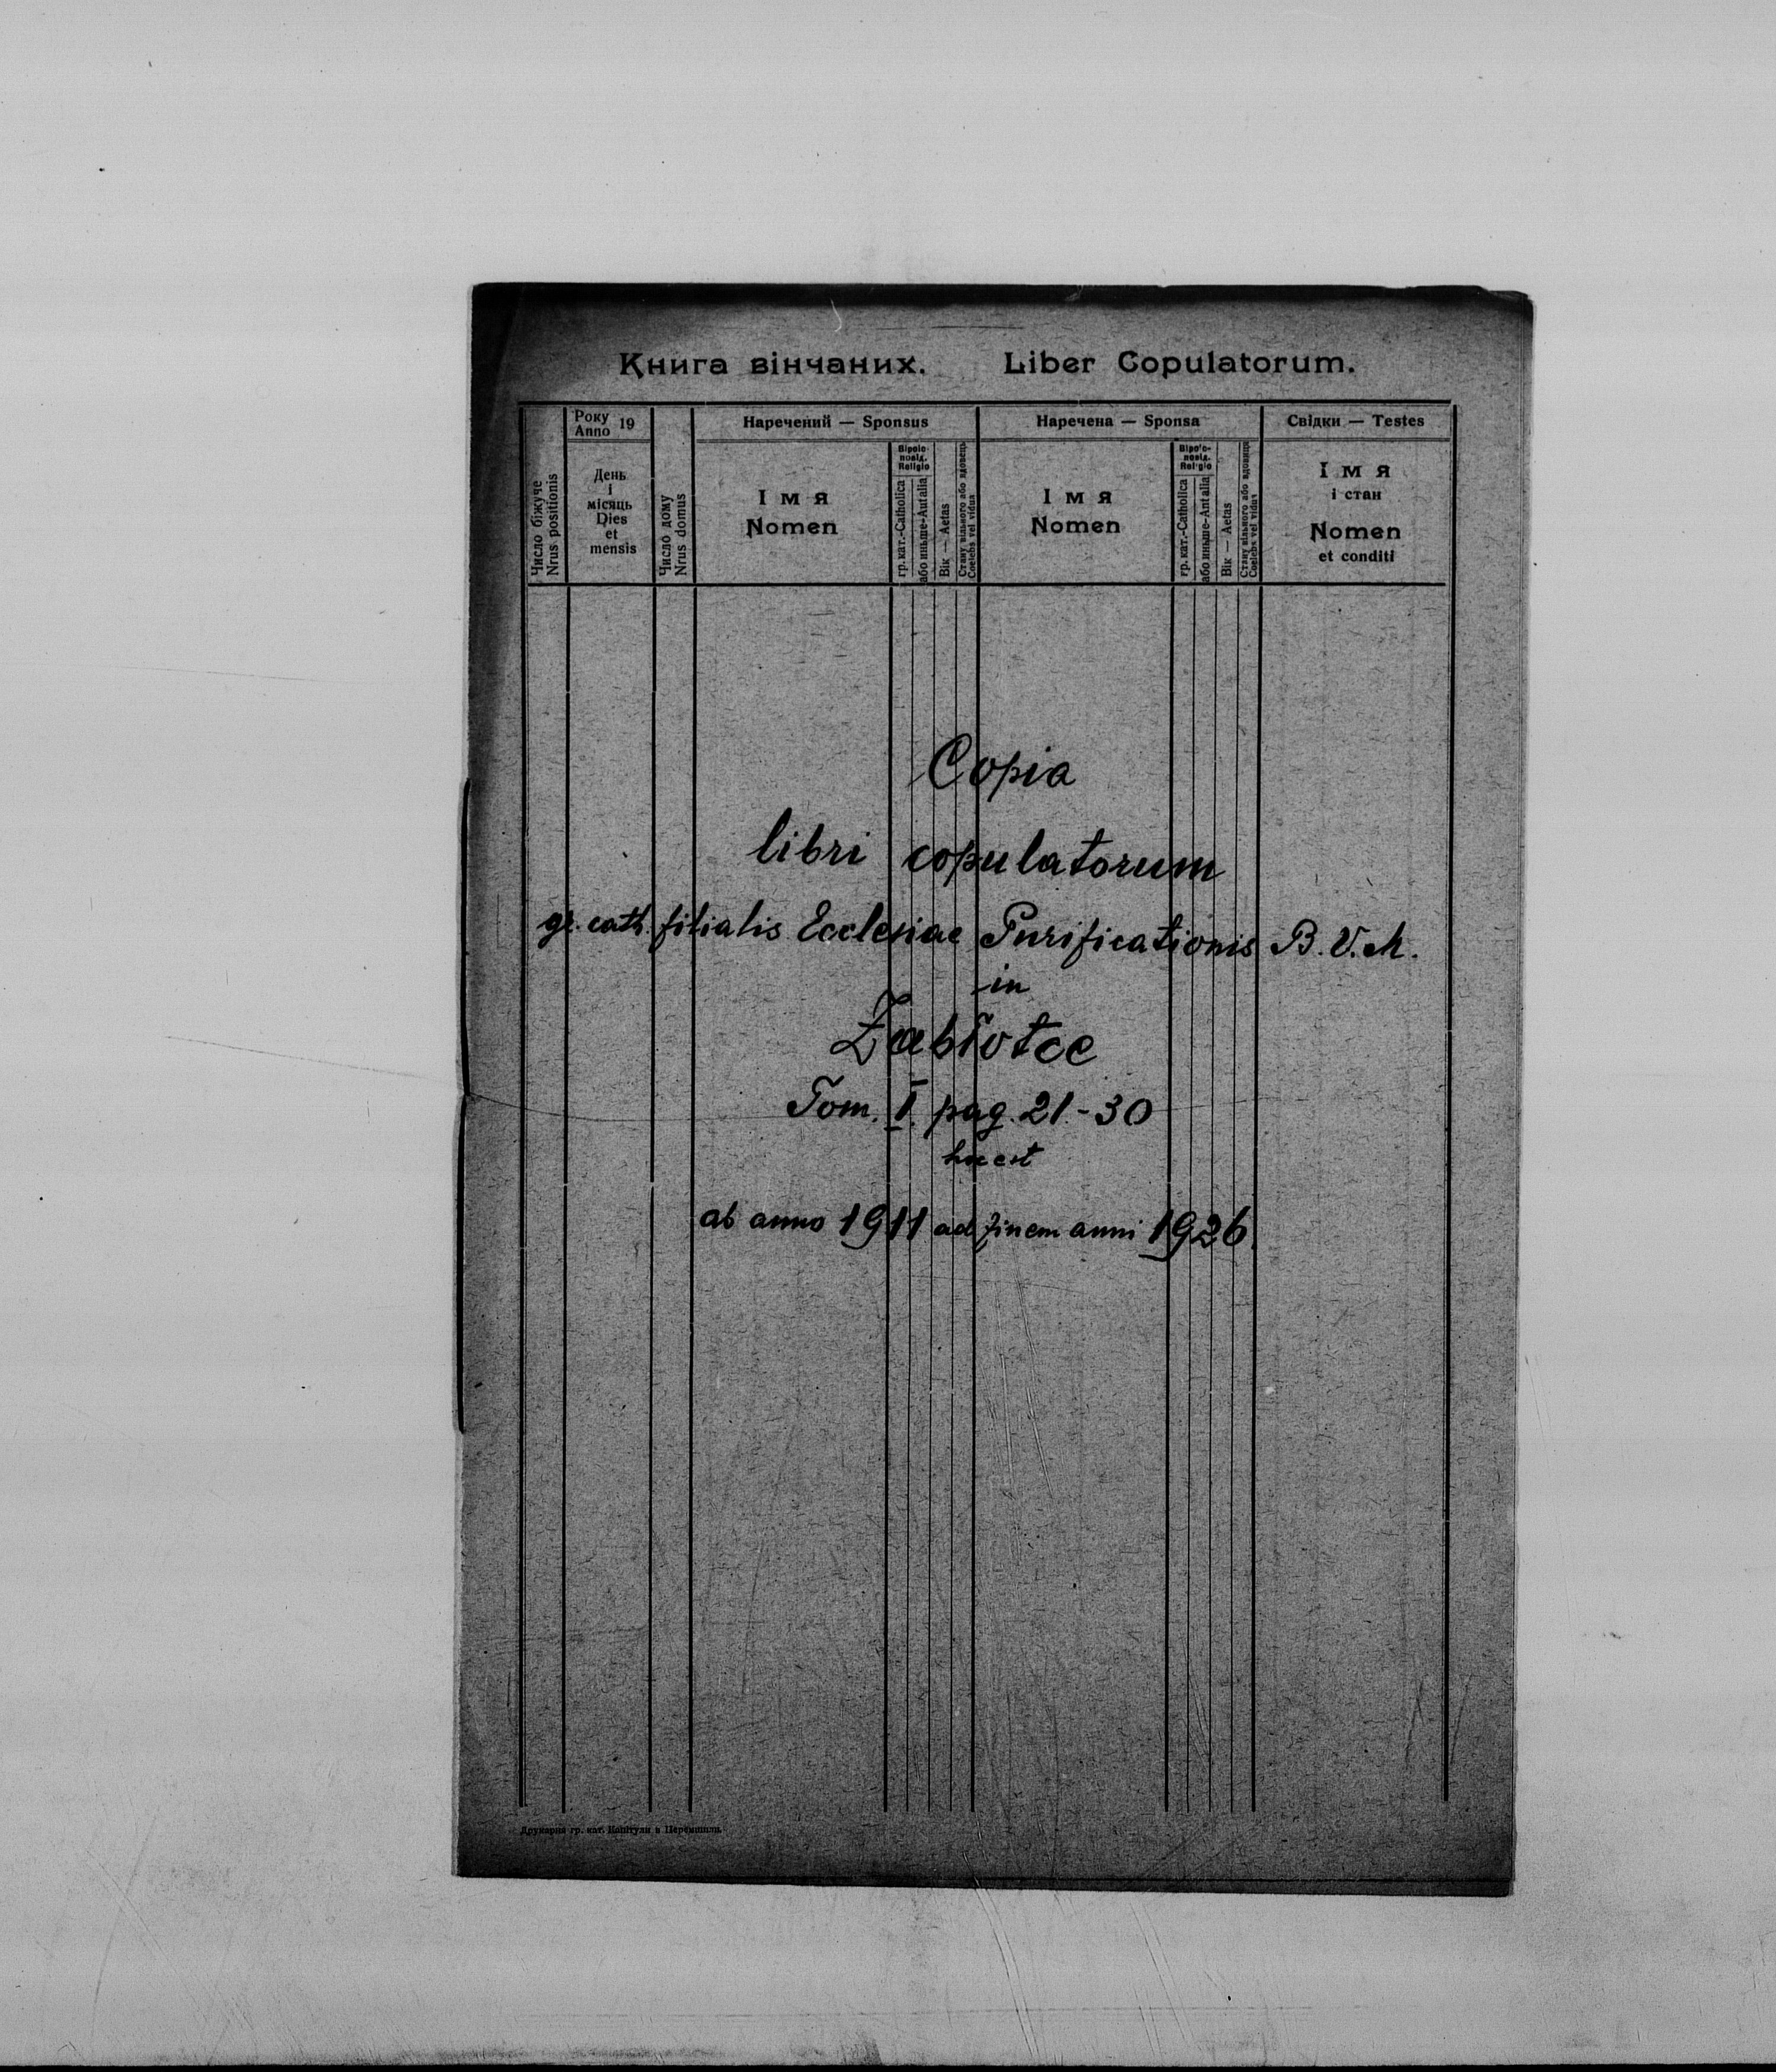 Книга вінчаних. Liber Copulatorum.
Число біжуче
Nrus positionis
Року
Anno 19
День
і
місяць
Dies
et
mensis
Число дому
Nrus domus
Наречений — Sponsus
І м я
Nomen
Віроіс-
повід.
Religio
гр. кат.-Catholica
або иньше-Aut alia
Вік — Aetas
Стану вільного або вдовець
Coelebs vel vidus
Наречена — Sponsa
І м я
Nomen
Віроіс-
повід.
Religio
гр. кат.-Catholica
або иньше-Aut alia
Вік — Aetas
Стану вільного або вдовиця
Coelebs vel vidus
Свідки — Testes
І м я
і стан
Nomen
et conditi
Copia
libri copulatorum
gr. cath. filialis Ecclesiae Purificationis B. V. M.
in
Zabłotce
Tom. I. pag. 21-30
hoc est
ab anno 1911 ad finem anni 1926.
Друкарня гр. кат. Капітули в Перемишли.